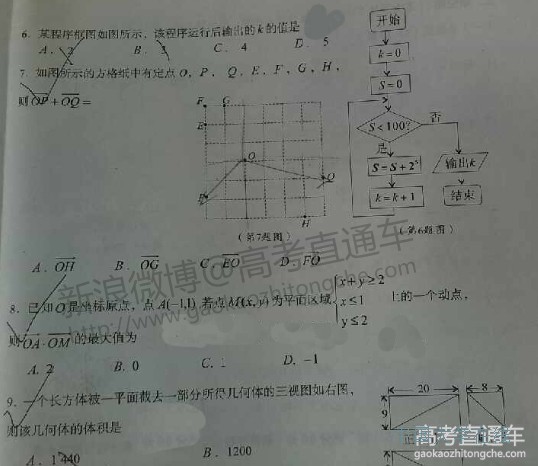 6. 某程序框图如图所示，该程序运行后输出的k的值是
A. 2 B. 3 C. 4 D. 5
7. 如图所示的方格纸中有定点 O，P，Q，E，F，G，H，
则OP+OQ=
F G
E
O
Q
P
H
(第7题图)
开始
k=0
S=0
S<100?
否
是
S=S+2^S
输出k
k=k+1
结束
(第6题图)
A. OH B. OG C. EO D. FO
8. 已知O是坐标原点，点A(-1,1) 若点M(x, y)为平面区域 { x+y≥2
x≤1
y≤2
上的一个动点，
则OA·OM的最大值为
A. 2 B. 0 C. D. -1
9. 一个长方体被一平面截去一部分所得几何体的三视图如右图，
则该几何体的体积是
A. 1440 B. 1200
20
8
9
正
新浪微博@高考直通车
www.gaokaozhitongche.com
高考直通车
gaokaozhitongche.com